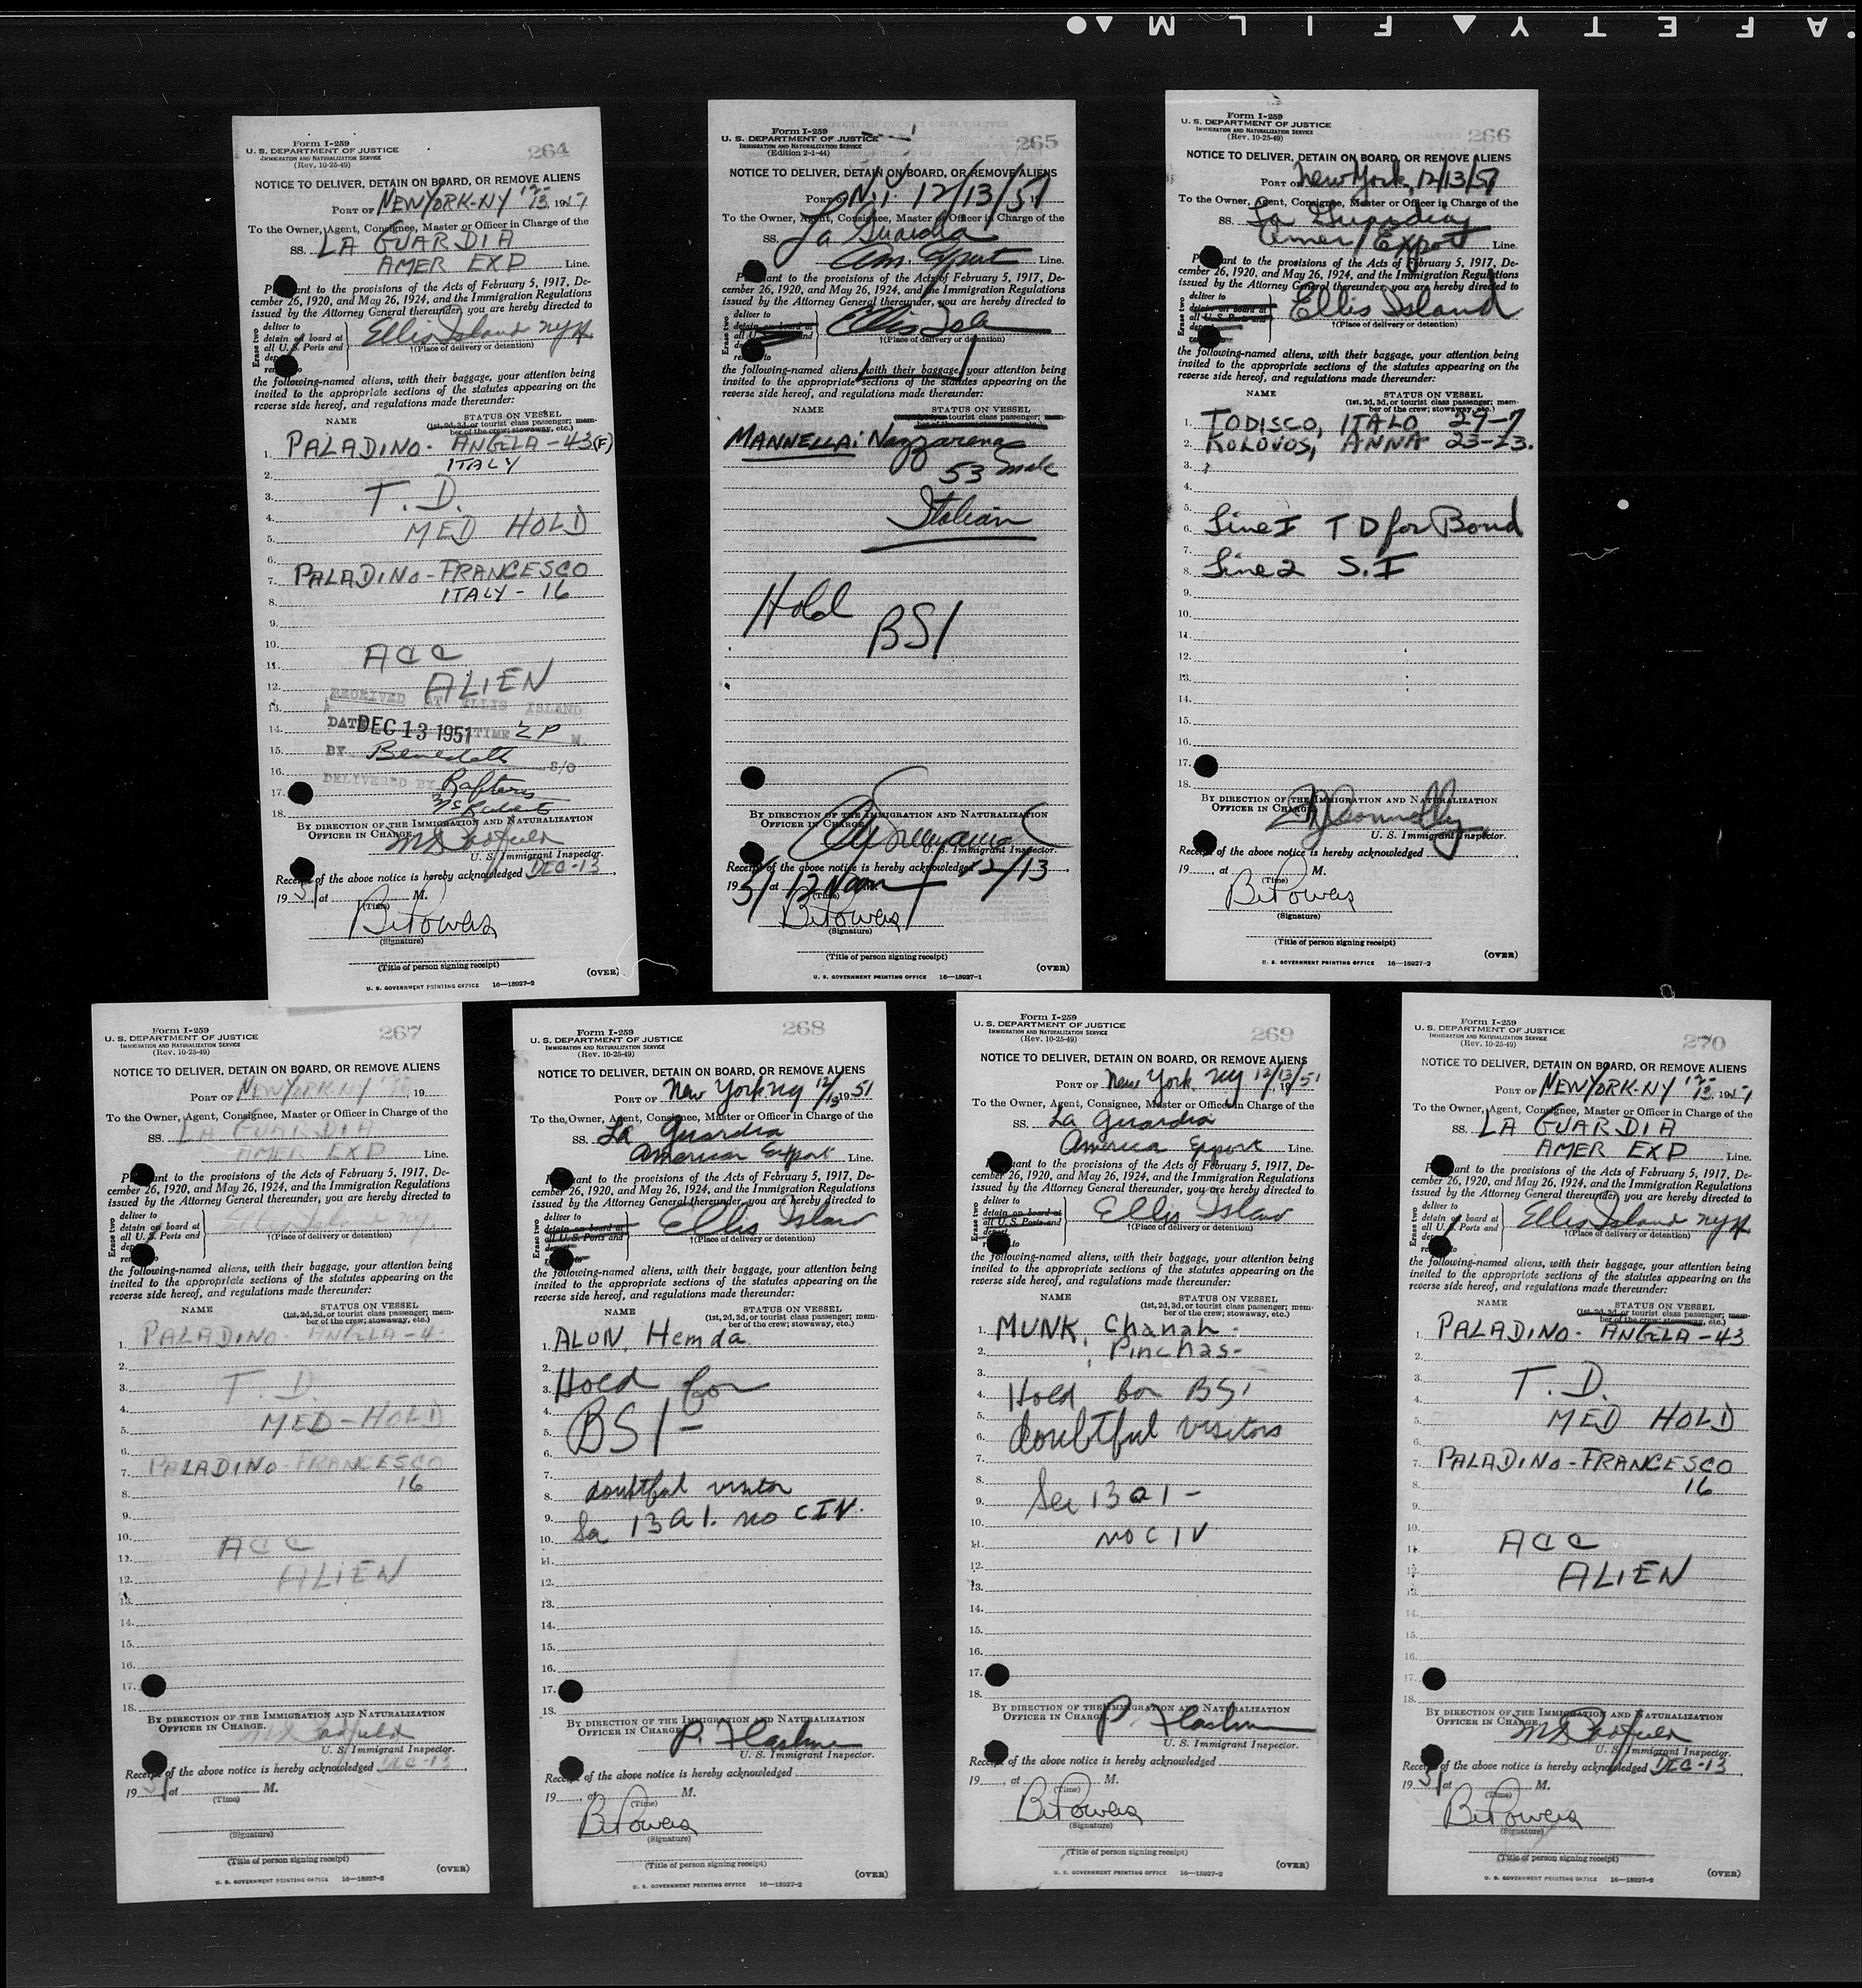 SAFETY FILM
Form I-259
U. S. DEPARTMENT OF JUSTICE
IMMIGRATION AND NATURALIZATION SERVICE
(Rev. 10-25-49)
264
NOTICE TO DELIVER, DETAIN ON BOARD, OR REMOVE ALIENS
PORT OF NEW YORK-NY 12-13, 1951
To the Owner, Agent, Consignee, Master or Officer in Charge of the
SS. LA GUARDIA
AMER EXP Line.
Pursuant to the provisions of the Acts of February 5, 1917, De-
cember 26, 1920, and May 26, 1924, and the Immigration Regulations
issued by the Attorney General thereunder, you are hereby directed to
Erase two
deliver to
detain on board at
all U. S. Ports and
Ellis Island NYH
†(Place of delivery or detention)
the following-named aliens, with their baggage, your attention being
invited to the appropriate sections of the statutes appearing on the
reverse side hereof, and regulations made thereunder:
NAME
STATUS ON VESSEL
(1st, 2d, 3d, or tourist class passenger; mem-
ber of the crew; stowaway, etc.)
1. PALADINO - ANGELA - 43 (F)
ITALY
2.
3. T. D.
4.
5. MED HOLD
6.
7. PALADINO - FRANCESCO
8. ITALY - 16
9.
10.
11. ACC
12. ALIEN
RECEIVED AT ELLIS ISLAND
13.
14. DATE DEC 13 1951 TIME 2 P M.
15. BY Benedetto S/O
16.
17. DELIVERED BY Rafterys
18. McRoberts
BY DIRECTION OF THE IMMIGRATION AND NATURALIZATION
OFFICER IN CHARGE.
U. S. Immigrant Inspector.
Receipt of the above notice is hereby acknowledged DEC-13,
19 51 at M.
(Time)
B. Powers
(Signature)
(Title of person signing receipt)
(OVER)
U. S. GOVERNMENT PRINTING OFFICE 16—18927-2
Form I-259
U. S. DEPARTMENT OF JUSTICE
IMMIGRATION AND NATURALIZATION SERVICE
(Edition 2-1-44)
265
NOTICE TO DELIVER, DETAIN ON BOARD, OR REMOVE ALIENS
PORT OF N.Y 12/13/51
To the Owner, Agent, Consignee, Master or Officer in Charge of the
SS. La Guardia
Am. Export Line.
Pursuant to the provisions of the Acts of February 5, 1917, De-
cember 26, 1920, and May 26, 1924, and the Immigration Regulations
issued by the Attorney General thereunder, you are hereby directed to
Erase two
deliver to
detain on board at
all U. S. Ports and
Ellis Isle
†(Place of delivery or detention)
the following-named aliens, with their baggage, your attention being
invited to the appropriate sections of the statutes appearing on the
reverse side hereof, and regulations made thereunder:
NAME
STATUS ON VESSEL
tourist class passenger; mem-
MANNELLA: Nazzarena
53 male
Italian
Hold
BSI
BY DIRECTION OF THE IMMIGRATION AND NATURALIZATION
OFFICER IN CHARGE
U. S. Immigrant Inspector.
Receipt of the above notice is hereby acknowledged 12/13
1951 at 12 Noon M.
(Time)
B. Powers
(Signature)
(Title of person signing receipt)
(OVER)
U. S. GOVERNMENT PRINTING OFFICE 16—18927-1
Form I-259
U. S. DEPARTMENT OF JUSTICE
IMMIGRATION AND NATURALIZATION SERVICE
(Rev. 10-25-49)
266
NOTICE TO DELIVER, DETAIN ON BOARD, OR REMOVE ALIENS
PORT OF New York, 12/13/51
To the Owner, Agent, Consignee, Master or Officer in Charge of the
SS. La Guardia
Amer/Export Line.
Pursuant to the provisions of the Acts of February 5, 1917, De-
cember 26, 1920, and May 26, 1924, and the Immigration Regulations
issued by the Attorney General thereunder, you are hereby directed to
Erase two
deliver to
detain on board at
all U. S. Ports and
Ellis Island
†(Place of delivery or detention)
the following-named aliens, with their baggage, your attention being
invited to the appropriate sections of the statutes appearing on the
reverse side hereof, and regulations made thereunder:
NAME
STATUS ON VESSEL
(1st, 2d, 3d, or tourist class passenger; mem-
ber of the crew; stowaway, etc.)
1. TODISCO, ITALO 27-7
2. KOLOVOS, ANNA 23-23.
3.
4.
5.
6. Line I T D for Bond
7.
8. Line 2 S.I
9.
10.
11.
12.
13.
14.
15.
16.
17.
18.
BY DIRECTION OF THE IMMIGRATION AND NATURALIZATION
OFFICER IN CHARGE
Connolly
U. S. Immigrant Inspector.
Receipt of the above notice is hereby acknowledged
19 , at M.
(Time)
B. Powers
(Signature)
(Title of person signing receipt)
(OVER)
U. S. GOVERNMENT PRINTING OFFICE 16—18927-2
Form I-259
U. S. DEPARTMENT OF JUSTICE
IMMIGRATION AND NATURALIZATION SERVICE
(Rev. 10-25-49)
267
NOTICE TO DELIVER, DETAIN ON BOARD, OR REMOVE ALIENS
PORT OF NEW YORK-NY , 19
To the Owner, Agent, Consignee, Master or Officer in Charge of the
SS. LA GUARDIA
AMER EXP Line.
Pursuant to the provisions of the Acts of February 5, 1917, De-
cember 26, 1920, and May 26, 1924, and the Immigration Regulations
issued by the Attorney General thereunder, you are hereby directed to
Erase two
deliver to
detain on board at
all U. S. Ports and
Ellis Island NY
†(Place of delivery or detention)
the following-named aliens, with their baggage, your attention being
invited to the appropriate sections of the statutes appearing on the
reverse side hereof, and regulations made thereunder:
NAME
STATUS ON VESSEL
(1st, 2d, 3d, or tourist class passenger; mem-
ber of the crew; stowaway, etc.)
1. PALADINO - ANGELA - 4
2.
3. T. D.
4.
5. MED - HOLD
6.
7. PALADINO - FRANCESCO
8. 16
9.
10.
11. ACC
12. ALIEN
13.
14.
15.
16.
17.
18.
BY DIRECTION OF THE IMMIGRATION AND NATURALIZATION
OFFICER IN CHARGE.
U. S. Immigrant Inspector.
Receipt of the above notice is hereby acknowledged DEC-13,
19 51 at M.
(Time)
(Signature)
(Title of person signing receipt)
(OVER)
U. S. GOVERNMENT PRINTING OFFICE 16—18927-2
Form I-259
U. S. DEPARTMENT OF JUSTICE
IMMIGRATION AND NATURALIZATION SERVICE
(Rev. 10-25-49)
268
NOTICE TO DELIVER, DETAIN ON BOARD, OR REMOVE ALIENS
PORT OF New York ny 12/13 1951
To the Owner, Agent, Consignee, Master or Officer in Charge of the
SS. La Guardia
American Export Line.
Pursuant to the provisions of the Acts of February 5, 1917, De-
cember 26, 1920, and May 26, 1924, and the Immigration Regulations
issued by the Attorney General thereunder, you are hereby directed to
Erase two
deliver to
detain on board at
all U. S. Ports and
Ellis Islan
†(Place of delivery or detention)
the following-named aliens, with their baggage, your attention being
invited to the appropriate sections of the statutes appearing on the
reverse side hereof, and regulations made thereunder:
NAME
STATUS ON VESSEL
(1st, 2d, 3d, or tourist class passenger; mem-
ber of the crew; stowaway, etc.)
1. ALON, Hemda
2.
3. Hold for
4.
5. BSI -
6.
7.
8. doubtful visitor
9. Se 13 a 1. no CIV.
10.
11.
12.
13.
14.
15.
16.
17.
18.
BY DIRECTION OF THE IMMIGRATION AND NATURALIZATION
OFFICER IN CHARGE
P. Flashn
U. S. Immigrant Inspector.
Receipt of the above notice is hereby acknowledged
19 , at M.
(Time)
B. Powers
(Signature)
(Title of person signing receipt)
(OVER)
U. S. GOVERNMENT PRINTING OFFICE 16—18927-2
Form I-259
U. S. DEPARTMENT OF JUSTICE
IMMIGRATION AND NATURALIZATION SERVICE
(Rev. 10-25-49)
269
NOTICE TO DELIVER, DETAIN ON BOARD, OR REMOVE ALIENS
PORT OF New York, ny 12/13/51
To the Owner, Agent, Consignee, Master or Officer in Charge of the
SS. La Guardia
America Export Line.
Pursuant to the provisions of the Acts of February 5, 1917, De-
cember 26, 1920, and May 26, 1924, and the Immigration Regulations
issued by the Attorney General thereunder, you are hereby directed to
Erase two
deliver to
detain on board at
all U. S. Ports and
Ellis Islan
†(Place of delivery or detention)
the following-named aliens, with their baggage, your attention being
invited to the appropriate sections of the statutes appearing on the
reverse side hereof, and regulations made thereunder:
NAME
STATUS ON VESSEL
(1st, 2d, 3d, or tourist class passenger; mem-
ber of the crew; stowaway, etc.)
1. MUNK, Chanah -
2. Pinchas -
3.
4. Hold for BSI
5.
6. doubtful visitors
7.
8.
9. Sec 13 a 1 -
10.
11. no C I V
12.
13.
14.
15.
16.
17.
18.
BY DIRECTION OF THE IMMIGRATION AND NATURALIZATION
OFFICER IN CHARGE
P. Flashn
U. S. Immigrant Inspector.
Receipt of the above notice is hereby acknowledged
19 , at M.
(Time)
B. Powers
(Signature)
(Title of person signing receipt)
(OVER)
U. S. GOVERNMENT PRINTING OFFICE 16—18927-2
Form I-259
U. S. DEPARTMENT OF JUSTICE
IMMIGRATION AND NATURALIZATION SERVICE
(Rev. 10-25-49)
270
NOTICE TO DELIVER, DETAIN ON BOARD, OR REMOVE ALIENS
PORT OF NEW YORK-NY 12-13, 1951
To the Owner, Agent, Consignee, Master or Officer in Charge of the
SS. LA GUARDIA
AMER EXP Line.
Pursuant to the provisions of the Acts of February 5, 1917, De-
cember 26, 1920, and May 26, 1924, and the Immigration Regulations
issued by the Attorney General thereunder, you are hereby directed to
Erase two
deliver to
detain on board at
all U. S. Ports and
Ellis Island NYH
†(Place of delivery or detention)
the following-named aliens, with their baggage, your attention being
invited to the appropriate sections of the statutes appearing on the
reverse side hereof, and regulations made thereunder:
NAME
STATUS ON VESSEL
(1st, 2d, 3d, or tourist class passenger; mem-
ber of the crew; stowaway, etc.)
1. PALADINO - ANGELA - 43
2.
3. T. D.
4.
5. MED HOLD
6.
7. PALADINO - FRANCESCO
8. 16
9.
10.
11. ACC
12. ALIEN
13.
14.
15.
16.
17.
18.
BY DIRECTION OF THE IMMIGRATION AND NATURALIZATION
OFFICER IN CHARGE
U. S. Immigrant Inspector.
Receipt of the above notice is hereby acknowledged DEC-13,
19 51 at M.
(Time)
B. Powers
(Signature)
(Title of person signing receipt)
(OVER)
U. S. GOVERNMENT PRINTING OFFICE 16—18927-2